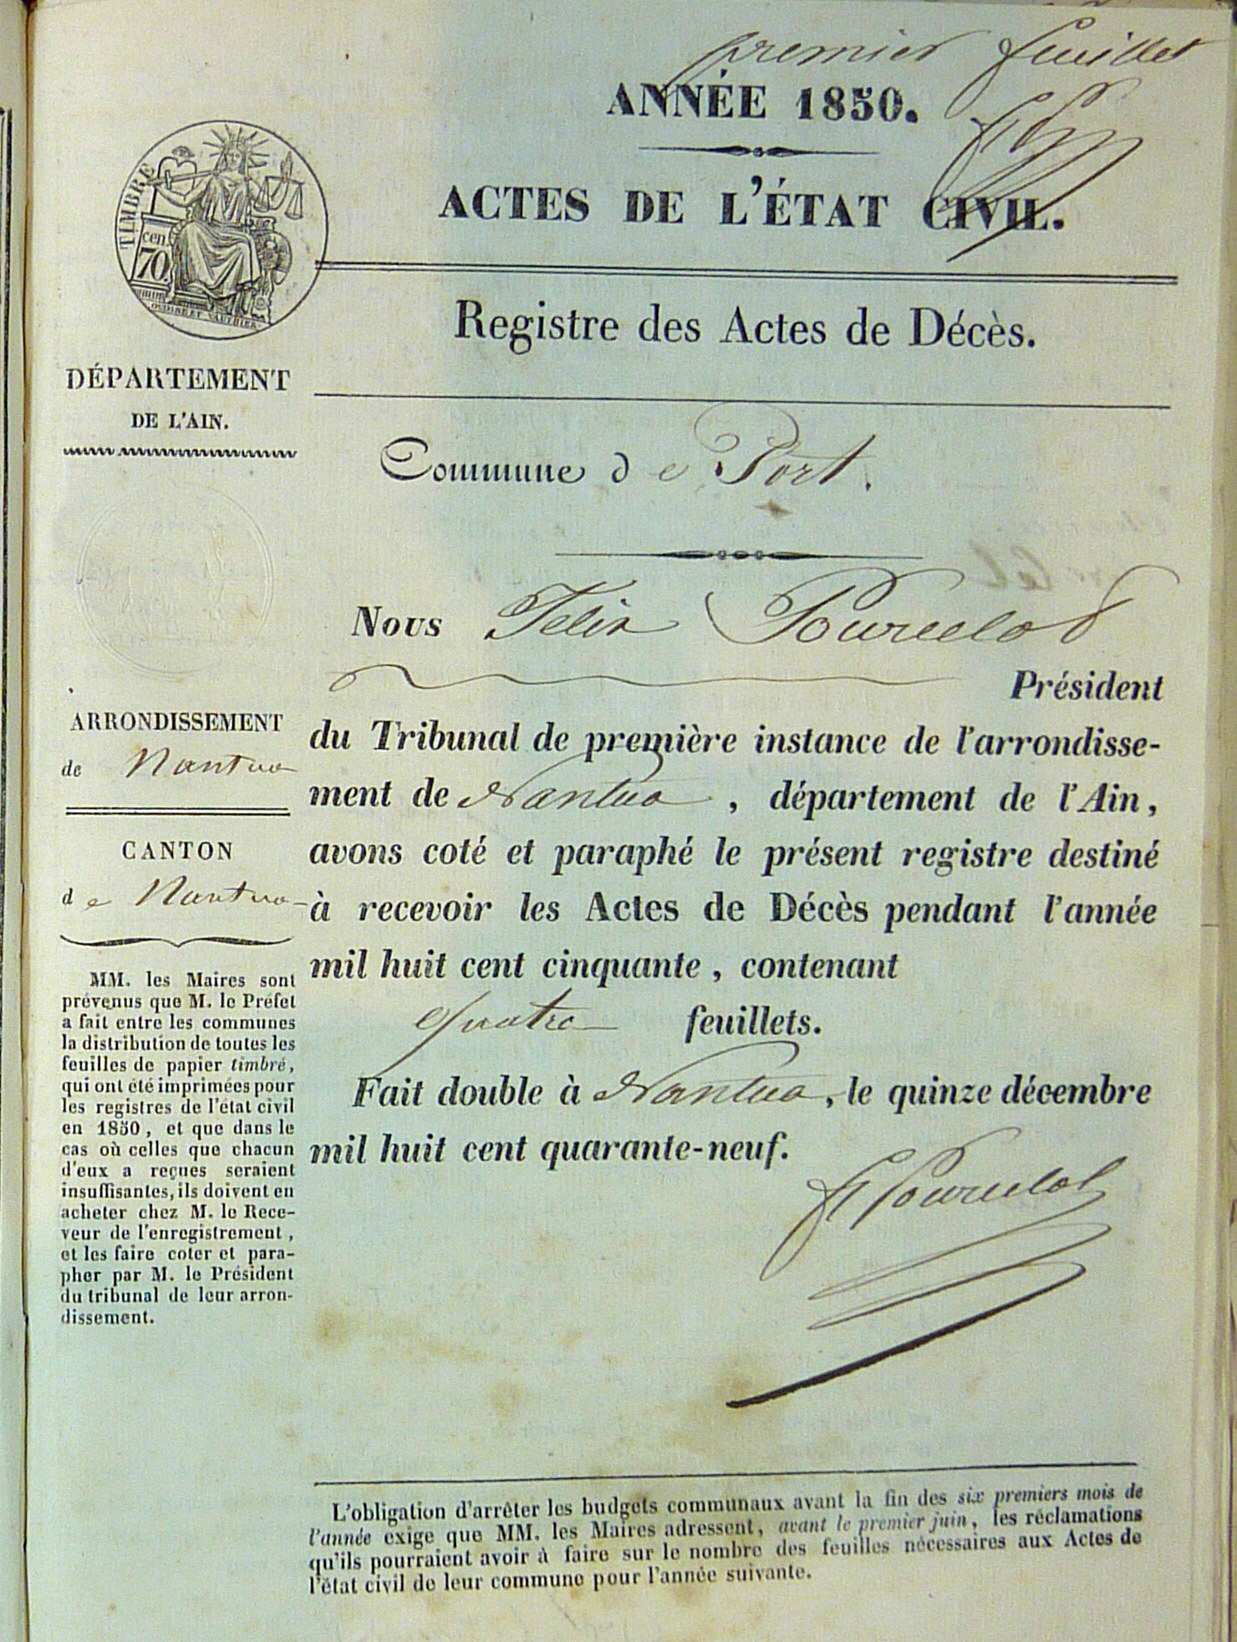 premier feuillet
ANNÉE 1850.
ACTES DE L'ÉTAT CIVIL.
TIMBRE
cen
70.
Registre des Actes de Décès.
DÉPARTEMENT
DE L'AIN.
Commune de Port.
Nous Félix Pourcelot
Président
du Tribunal de première instance de l'arrondisse-
ment de Nantua, département de l'Ain,
avons coté et paraphé le présent registre destiné
à recevoir les Actes de Décès pendant l'année
mil huit cent cinquante, contenant
quatre feuillets.
Fait double à Nantua, le quinze décembre
mil huit cent quarante-neuf.
F Pourcelot
ARRONDISSEMENT
de Nantua
CANTON
de Nantua
MM. les Maires sont
prévenus que M. le Préfet
a fait entre les communes
la distribution de toutes les
feuilles de papier timbré,
qui ont été imprimées pour
les registres de l'état civil
en 1850, et que dans le
cas où celles que chacun
d'eux a reçues seraient
insuffisantes, ils doivent en
acheter chez M. le Rece-
veur de l'enregistrement,
et les faire coter et para-
pher par M. le Président
du tribunal de leur arron-
dissement.
L'obligation d'arrêter les budgets communaux avant la fin des six premiers mois de
l'année exige que MM. les Maires adressent, avant le premier juin, les réclamations
qu'ils pourraient avoir à faire sur le nombre des feuilles nécessaires aux Actes de
l'état civil de leur commune pour l'année suivante.